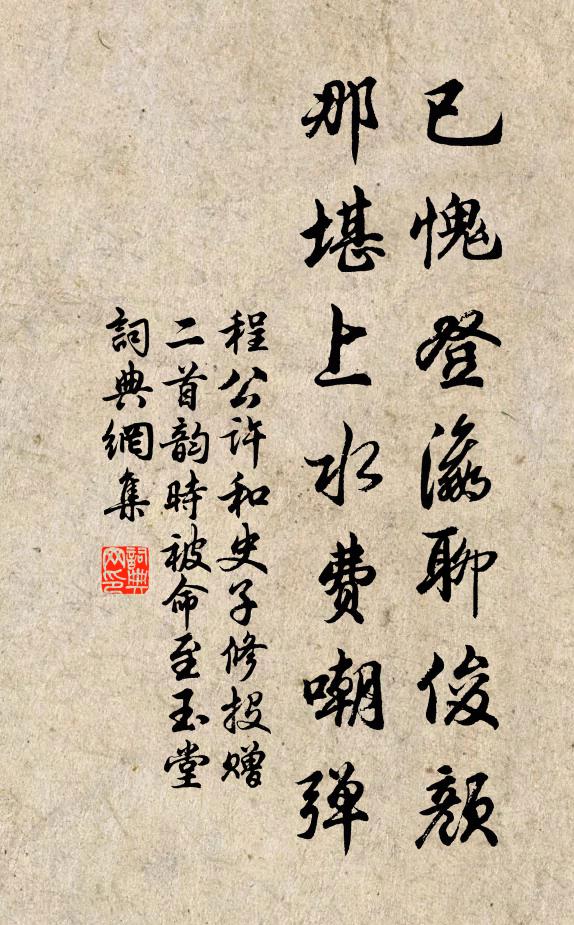 已愧登瀛聊俊颜
那堪上水费嘲弹
程公许和史子修投赠
二首韵時被命至玉堂
詞典網集
詞典網印